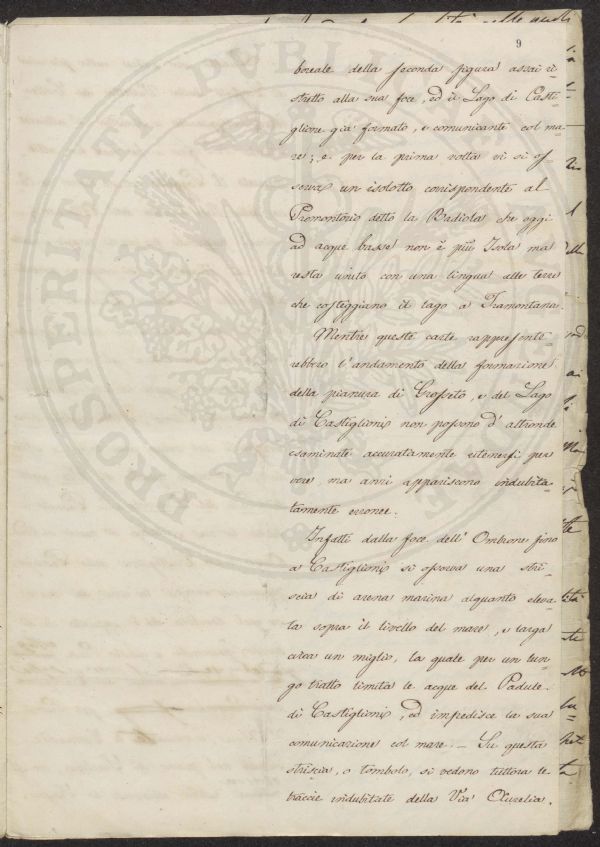 9
boreale della seconda figura assai ri-
stretto alla sua foce, ed il Lago di Casti-
glione già formato, e comunicante col ma-
re; e per la prima volta vi si os-
serva un isolotto corrispondente al
Promontorio detto la Badiola che oggi
ad acque basse non è più Isola ma
resta unito con una lingua alle terre
che costeggiano il lago a Tramontana.
Mentre queste carte rappresente-
rebbero l'andamento della formazione
della pianura di Grosseto, e del Lago
di Castiglione non possono d'altronde
esaminate accuratamente ritenersi per
vere ma anzi appariscono indubita-
tamente erronee.
Infatti dalla foce dell'Ombrone fino
a Castiglione si osserva una stri-
scia di arena marina alquanto eleva-
ta sopra il livello del mare, e larga
circa un miglio, la quale per un lun-
go tratto limita le acque del Padule
di Castiglione, ed impedisce la sua
comunicazione col mare. — Su questa
striscia, o tombolo, si vedono tuttora le
traccie indubitate della Via Aurelia.
PROSPERITATI PVBLICAE